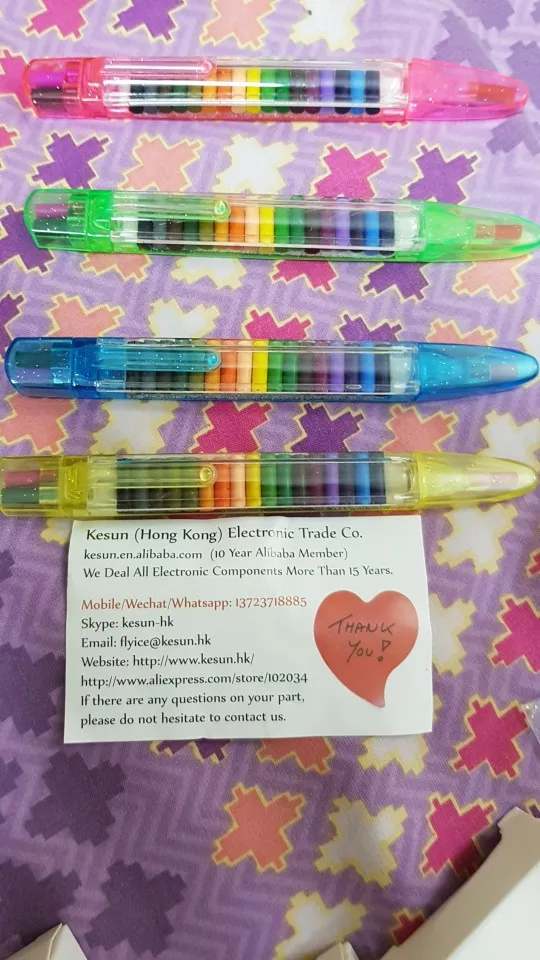 Kesun (Hong Kong) Electronic Trade Co.
kesun.en.alibaba.com (10 Year Alibaba Member)
We Deal All Electronic Components More Than 15 Years.
Mobile/Wechat/Whatsapp: 13723718885
Skype: kesun-hk
Email: flyice@kesun.hk
Website: http://www.kesun.hk/
http://www.aliexpress.com/store/102034
If there are any questions on your part,
please do not hesitate to contact us.
THANK
YOU!